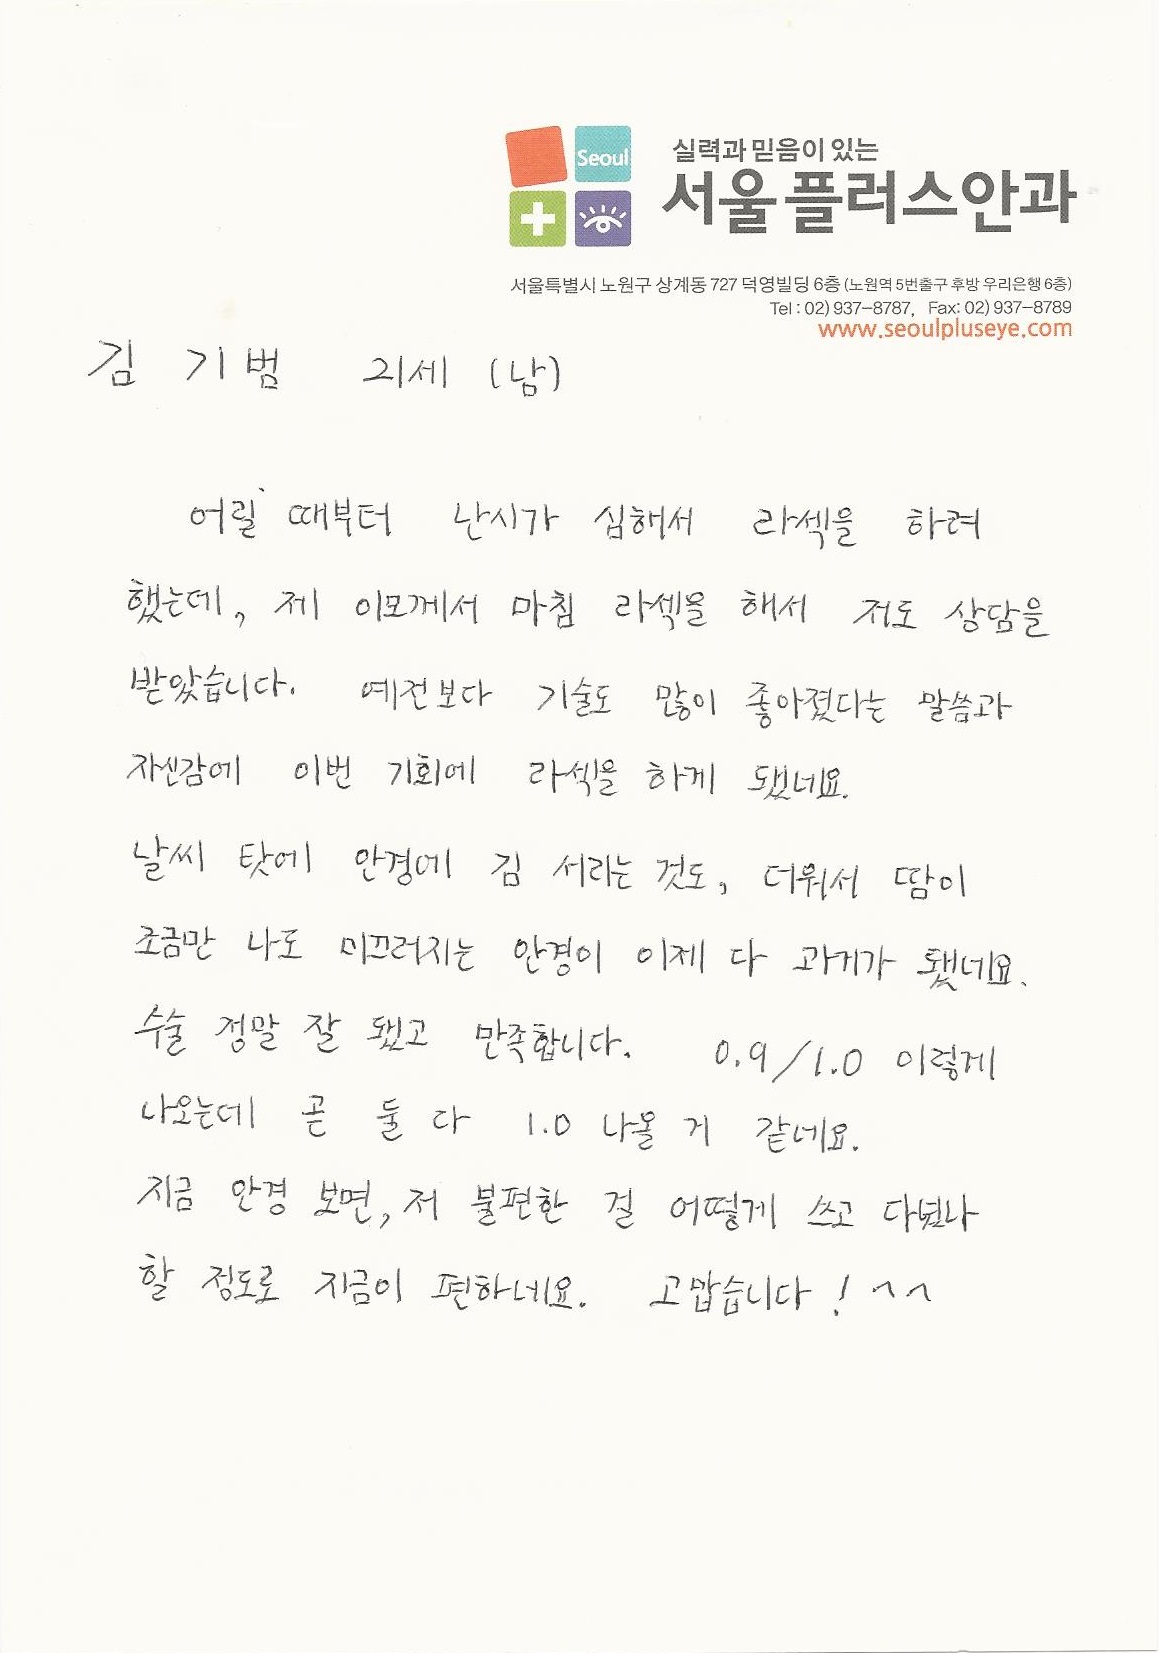 Seoul
실력과 믿음이 있는
서울플러스안과
서울특별시 노원구 상계동 727 덕영빌딩 6층 (노원역 5번출구 후방 우리은행 6층)
Tel : 02) 937-8787, Fax: 02) 937-8789
www.seoulpluseye.com
김 기범 21세 (남)
어릴 때부터 난시가 심해서 라섹을 하려
했는데, 제 이모께서 마침 라섹을 해서 저도 상담을
받았습니다. 예전보다 기술도 많이 좋아졌다는 말씀과
자신감에 이번 기회에 라섹을 하게 됐네요.
날씨 탓에 안경에 김 서리는 것도, 더워서 땀이
조금만 나도 미끄러지는 안경이 이제 다 과거가 됐네요.
수술 정말 잘 됐고 만족합니다. 0.9/1.0 이렇게
나오는데 곧 둘 다 1.0 나올 거 같네요.
지금 안경 보면, 저 불편한 걸 어떻게 쓰고 다녔나
할 정도로 지금이 편하네요. 고맙습니다! ^^